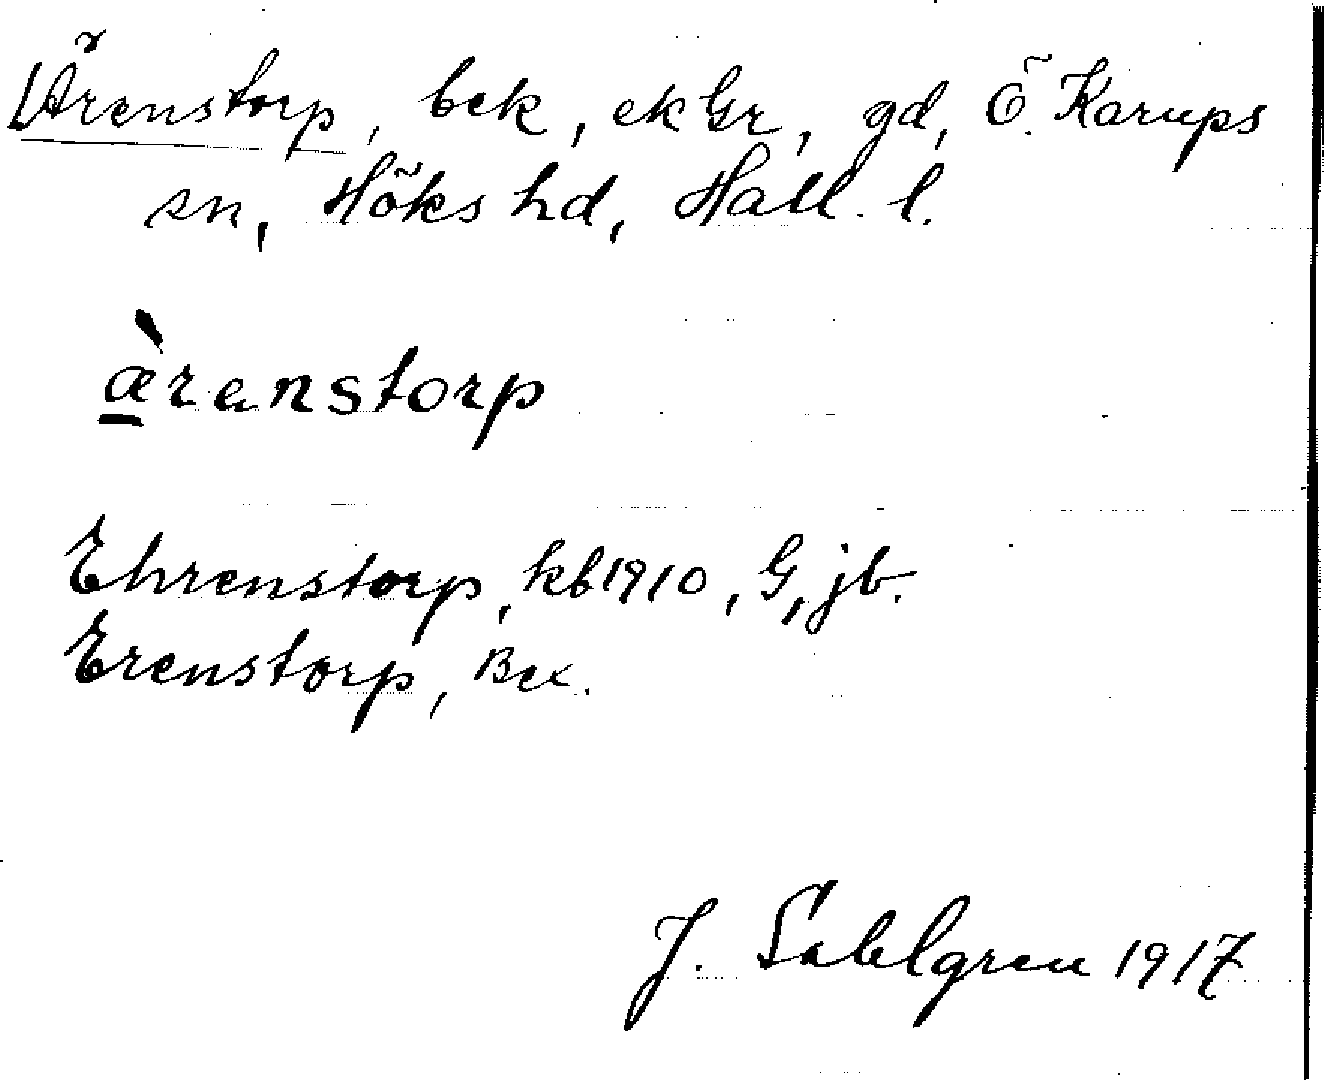 Ärenstorp, bek, ek Gr, gd, Ö. Karups
sn, Höks hd, Hall. l.
æ̀renstorp
Ehrenstorp, kb 1910, G, jb.
Erenstorp, Bex.
J. Sahlgren 1917